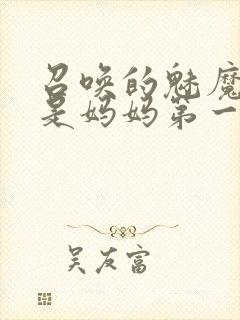 召唤的魅魔
是妈妈第一
吴友富